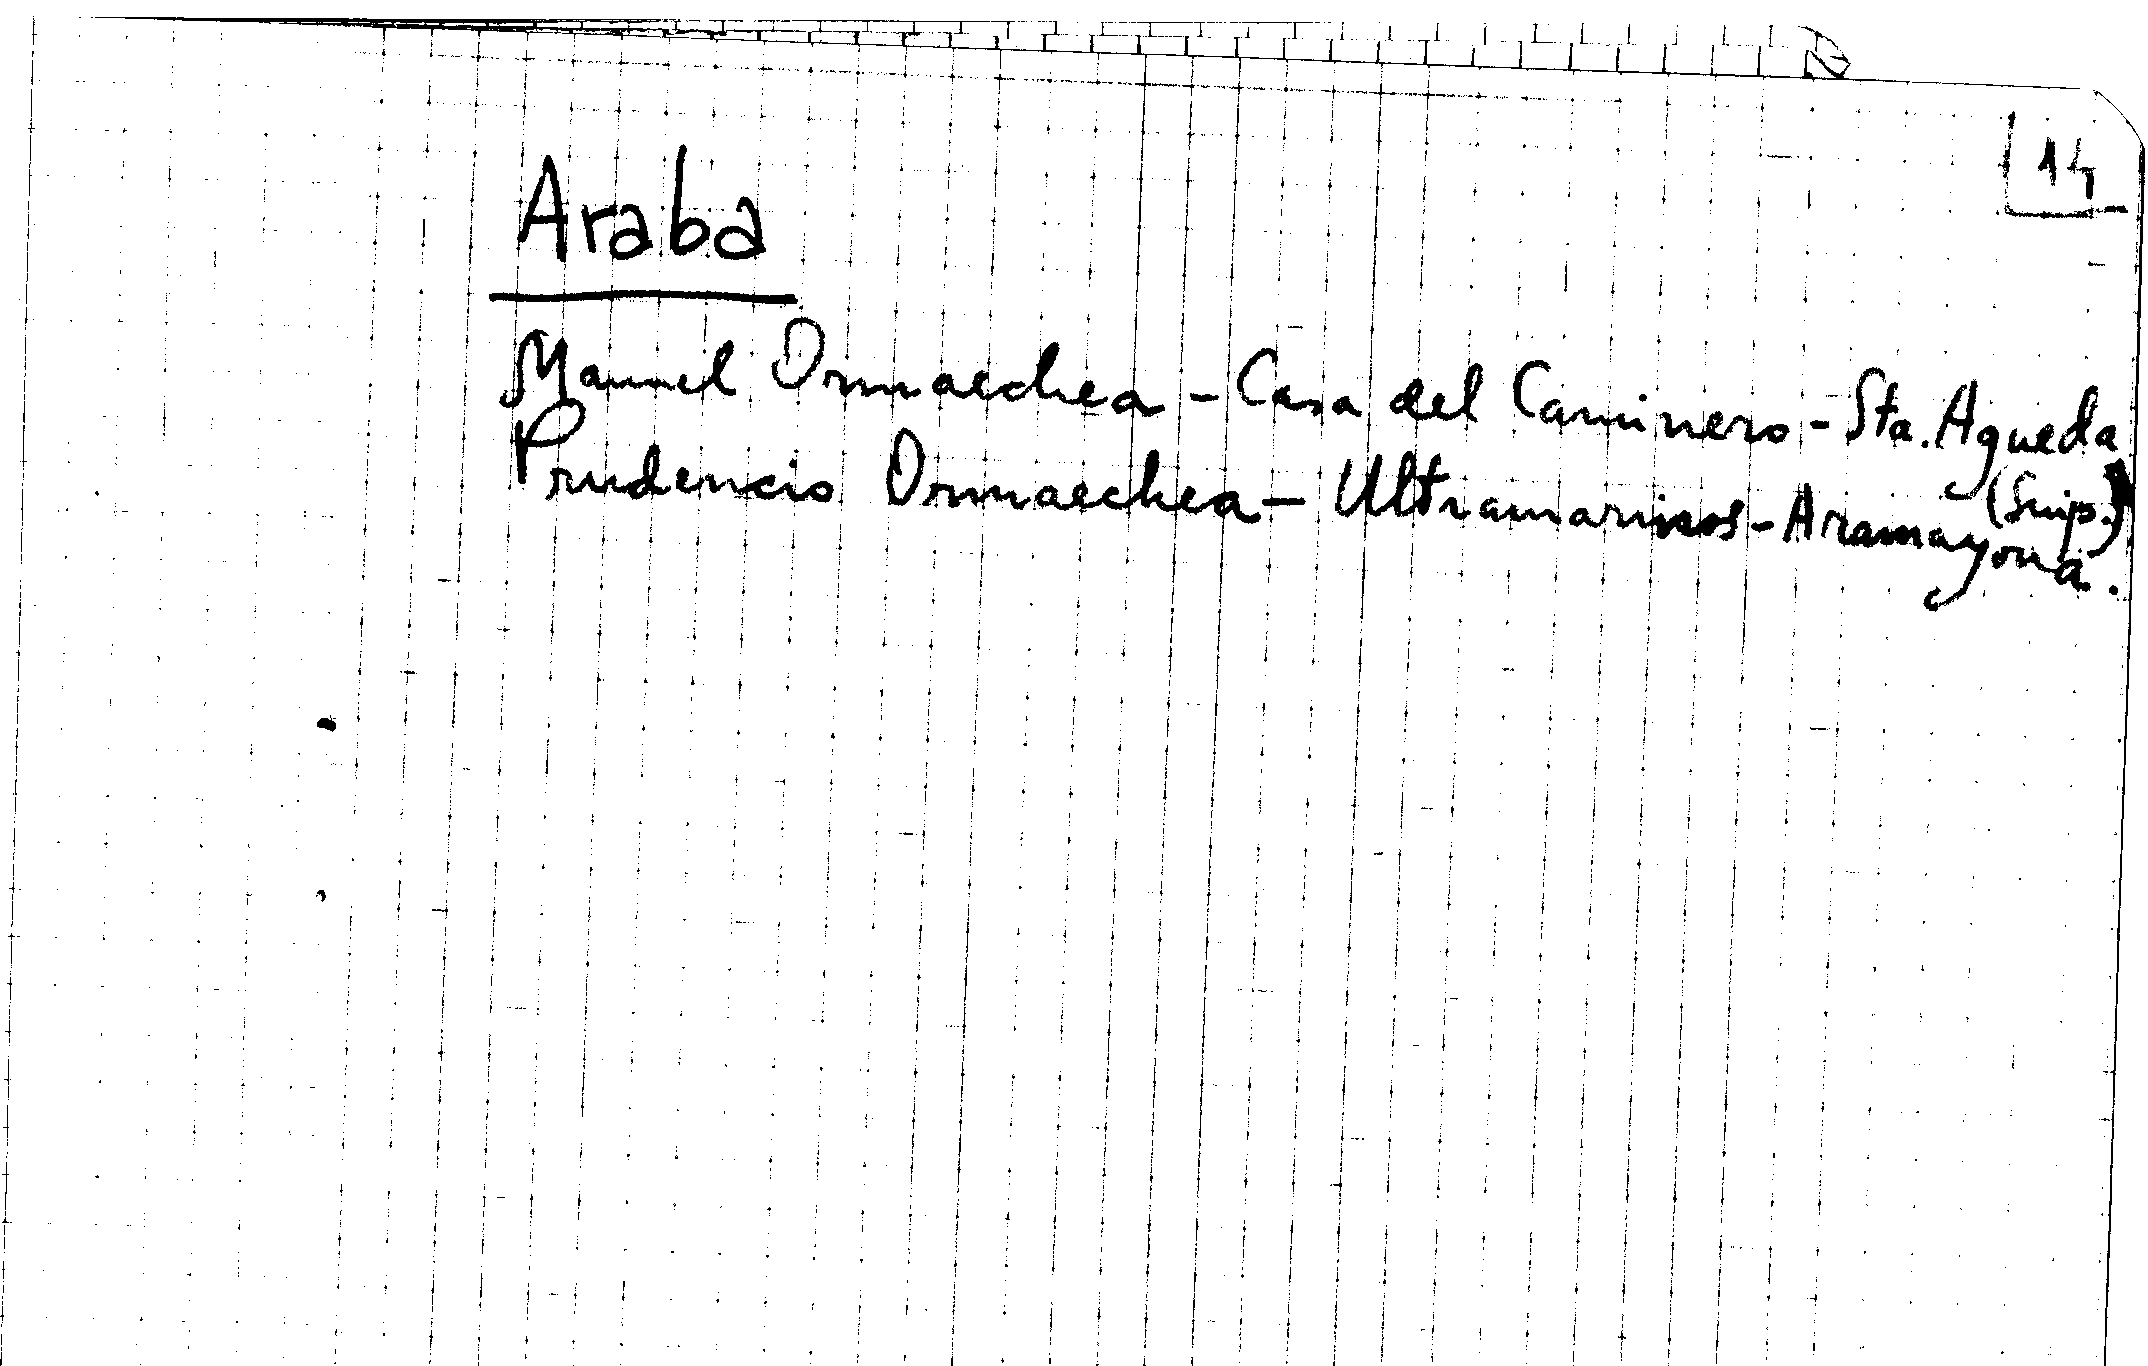 14
Araba
Manuel Ormaechea - Casa del Caminero - Sta. Agueda
(Guip.)
Prudencio Ormaechea - Ultramarinos - Aramayona.